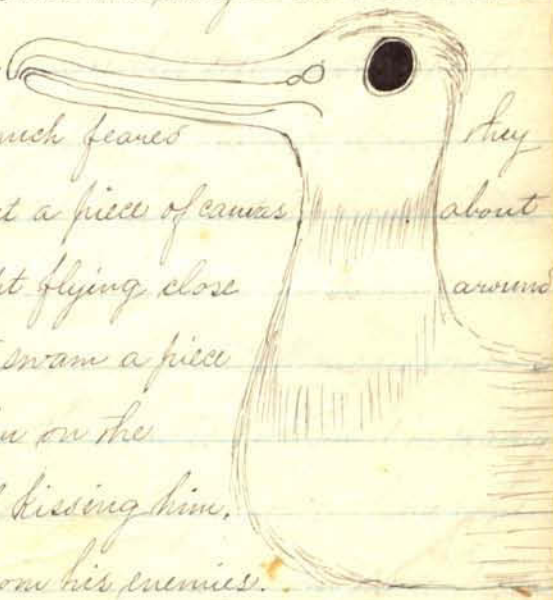 much feared they
a piece of canvas about
flying close around
swam a piece
on the
kissing him,
his enemies.